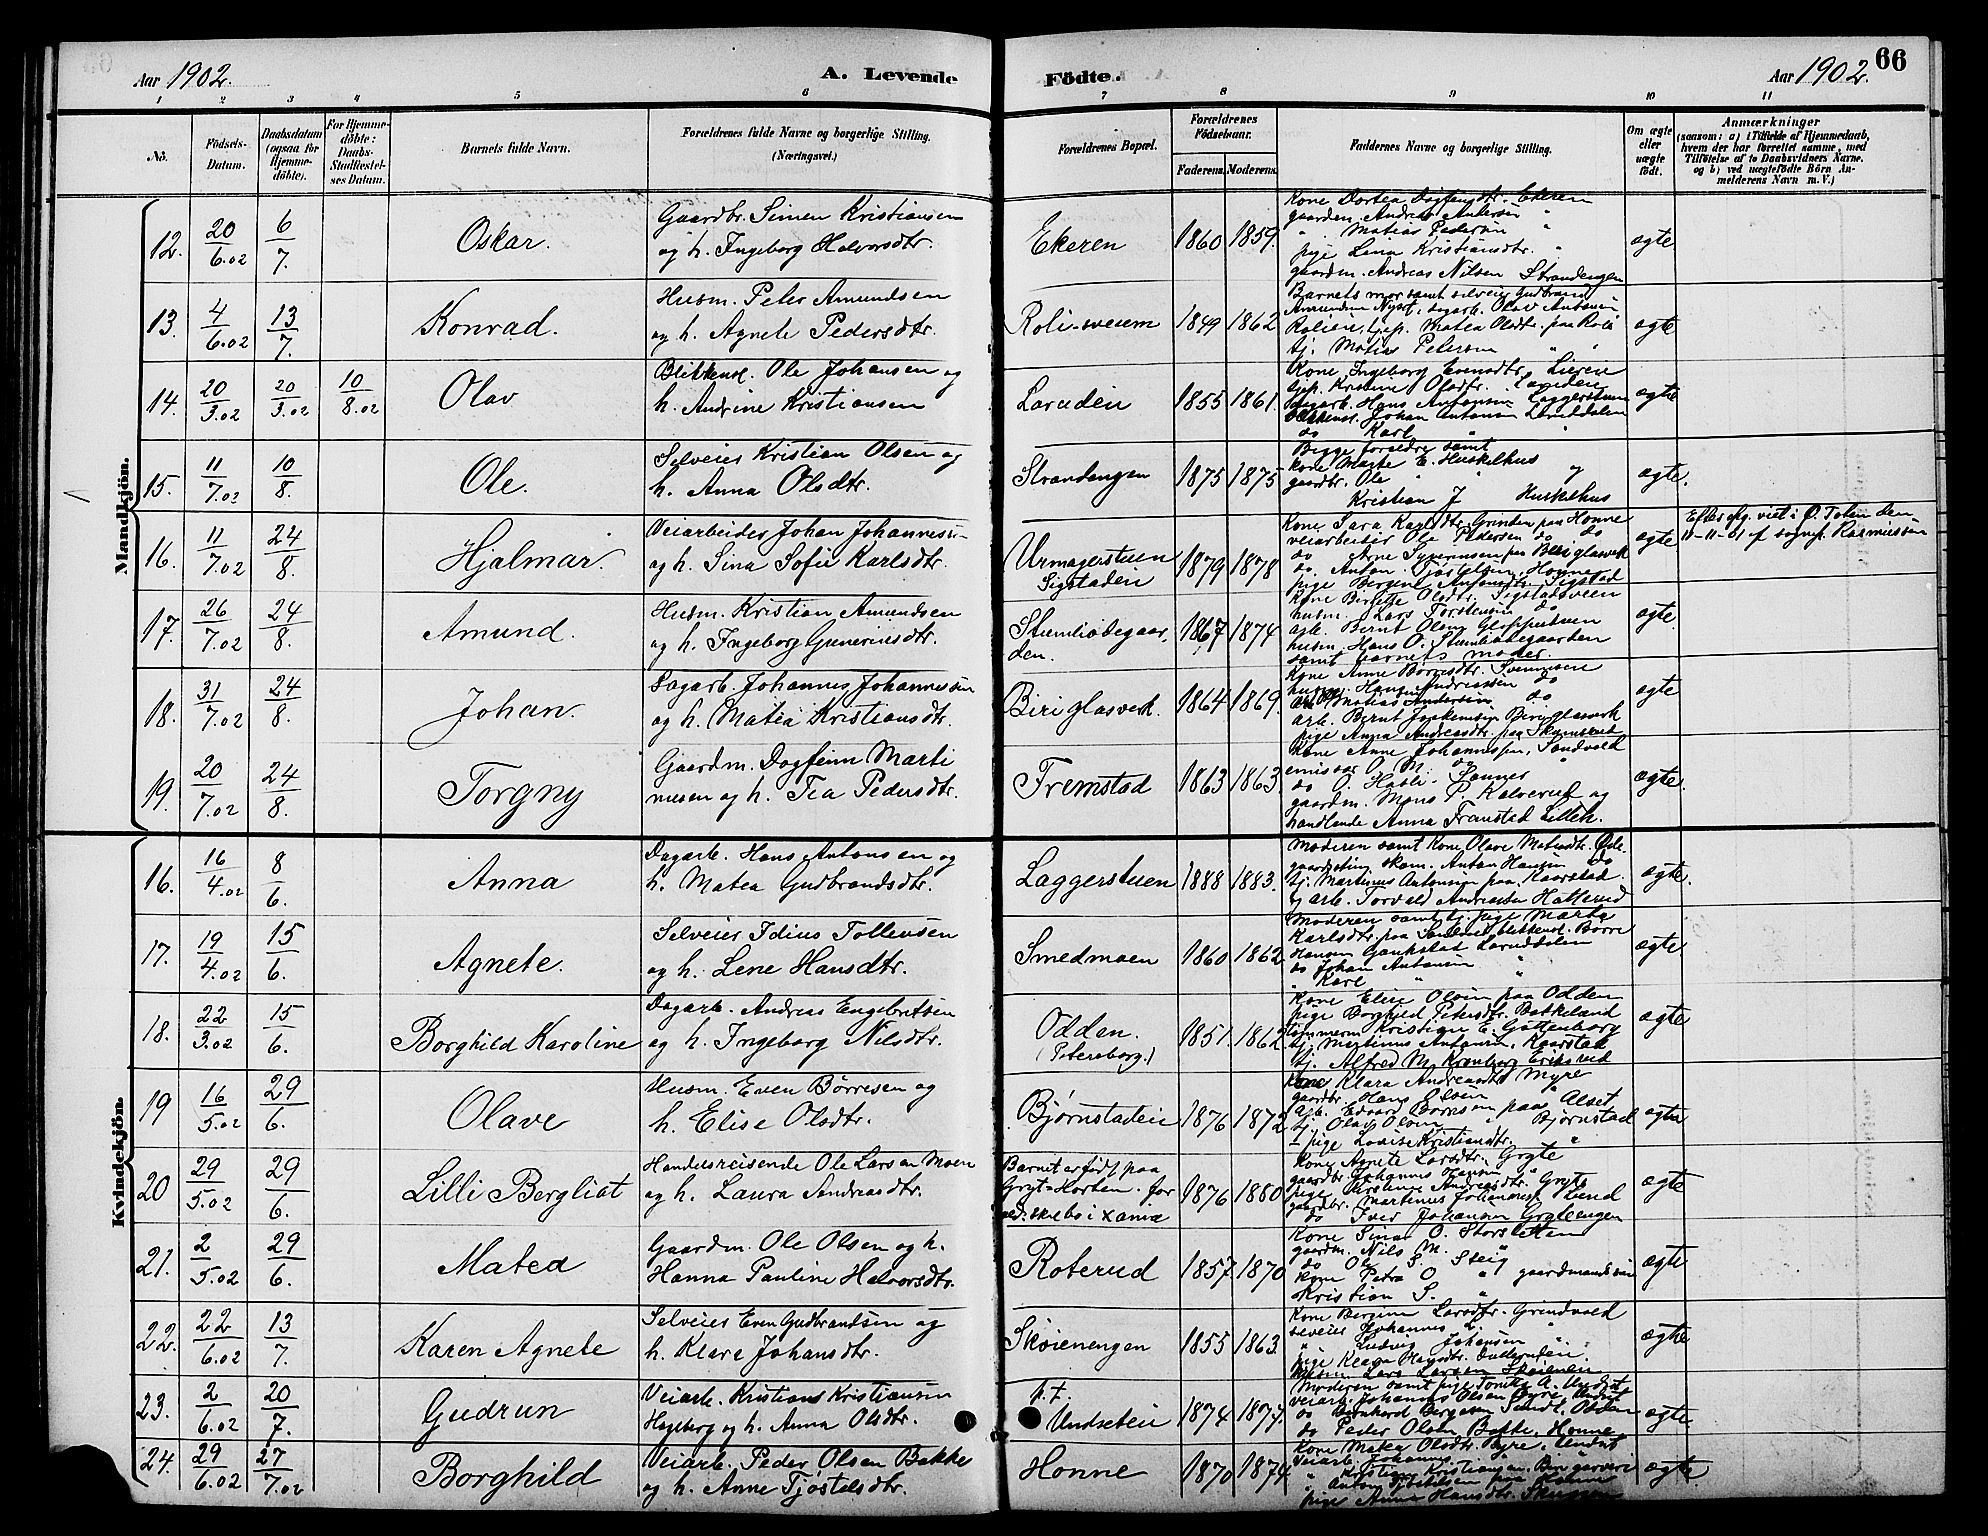 Aar 1902.
A. Levende
Födte.
Aar 1902.
66
1 2 3 4 5 6 7 8 9 10 11
No.
Födsels-
Datum.
Daabsdatum
(ogsaa for
Hjemme-
döbte).
For Hjemme-
döbte:
Daabs-
Stadfæstel-
ses Datum.
Barnets fulde Navn.
Forældrenes fulde Navne og borgerlige Stilling.
(Næringsvei.)
Forældrenes Bopæl.
Forældrenes
Födselsaar.
Faderens. Moderens.
Faddernes Navne og borgerlige Stilling.
Om ægte
eller
uægte
födt.
Anmærkninger
(saasom: a) i Tilfælde af Hjemmedaab,
hvem der har forrettet samme, med
Tilföielse af to Daabsvidners Navne.
og b) ved uægtefödte Börn An-
melderens Navn m. V.)
Mandkjön.
12. 20/6.02 6/7. Oskar.
Gaardbr. Simen Kristiansen
og h. Ingeborg Halvorsdtr.
Ekeren 1860 1859.
Kone Dortea Dagfinsdtr. Ekeren
gaardm. Andreas Andersen "
" Matias Pedersen "
pige Lina Kristiansdtr. "
gaardm. Andreas Nilsen Strandengen
ægte
13. 4/6.02 13/7. Konrad.
Husm. Peter Amundsen
og h. Agnete Pedersdtr.
Roli-sveem 1849 1862
Barnets mor samt selveier Gudbrand
tj. Matias Petersen " "
ægte
14. 20/3.02 20/3.02 10/8.02 Olav
Blikkensl. Ole Johansen og
h. Andrine Kristiansen
Laruden 1855 1861.
Kone Ingeborg Evensdtr. Liereie
tjp. Kristine Olsdtr. Laruden
dagarb. Hans Antonsen Laggerstuen
blikkensl. Johan Antonsen Laruddalen
do Karl "
ægte
15. 11/7.02 10/8. Ole.
Selveier Kristian Olsen og
h. Anna Olsdtr.
Strandengen 1875 1875
Begge foreldre samt
kone Marte E. Huskelhus
gaardbr. Ole " og
Kristian J Huskelhus
ægte.
16. 11/7.02 24/8. Hjalmar.
Veiarbeider Johan Johannessen
og h. Sina Sofie Karlsdtr.
Urmagerstuen
Sigstaden
1879 1878
Kone Sara Karlsdtr. Grinden paa Honne
veiarbeider Ole Pedersen do do
do Anton Tjøstelsen, Honne
pige Bergine Antonsdtr. Sigstad
ægte
Efter skg. viet i Ø. Toten den
11-11-01 af sognep. Rasmussen
17. 26/7.02 24/8. Amund.
Husm. Kristian Amundsen
og h. Ingeborg Gunerius dtr.
Stumliødegaar,
den. 1867 1874
Kone Birgitte Olsdtr. Sigstadsveen
husm. Lars Torstensen do
arb. Bernt Olsen Gloppestuen
husm. Hans O. Stumliødegaarden
samt barnets moder.
ægte.
18. 31/7.02 24/8. Johan.
Dagarb. Johannes Johannessen
og h. Matea Kristiansdtr.
Biri glasverk. 1864 1869.
Kone Anne Børresdtr. Svennseen
husm. Hans Andreassen do
arb. Matias Andersen do
arb. Bernt Joakimsen Biri glasverk
pige Anna Andreasdtr. paa Skumsrud
ægte
19. 20/7.02 24/8. Torgny
Gaardm. Dagfinn Marti
nusen og h. Tea Pedersdtr.
Fremstad 1863 1863.
Kone Anne Johannessen, Sandvold
emissær O. M. do "
do O. Hasli Sonnes
gaardm. Mons P. Kalverud og
handlende Anna Framstad Lilleh.
ægte.
Kvindekjön.
16. 16/4.02 8/6. Anna
Dagarb. Hans Antonsen og
h. Matea Gudbrandsdtr.
Laggerstuen 1888 1883.
Moderen samt kone Olave Matiasdtr. Øde-
gaardseting skom. Anton Hansen do
tj. Martinus Antonsen paa Kaarstad.
og arb. Torvald Andreassen Hatterud
ægte.
17. 19/4.02 15/6. Agnete.
Selveier Idius Tollevsen
og h. Lene Hansdtr.
Smedmoen 1860 1862
Moderen samt tj. pige Marte
Karlsdtr. paa Sandvold blikkensl. Børre
Hansen Gaukstad Laruddalen
do Johan Antonsen "
" Karl " "
ægte
18. 22/3.02 15/6. Borghild Karoline
Dagarb. Andreas Engebretsen
og h. Ingeborg Nilsdtr.
Odden.
(Petersborg.)
1851. 1862
Kone Elise Olsen paa Odden
pige Borghild Petersdtr. Bakkeland
tømmerm. Kristian E. Gøttenborg
tj. Martinus Antonsen, Kaarstad
tj. Alfred M. Kronborg Eriksrud
ægte
19 16/5.02 29/6. Olave
Husm. Even Børresen og
h. Elise Olsdtr.
Bjørnstadeie 1876 1872
Kone Klara Andreasdtr. Myre
gaardbr. Hans Olsen "
arb. Edvar Børresen paa Alset
tj. Olav Olsen " Bjørnstad
pige Lovise Kristiansdtr. "
ægte
20 29/5.02 29/6. Lilli Bergliot
Handelsreisende Ole Larsen Moen
og h. Laura Andreasdtr.
Barnet er født paa
Gryt=Horten. for
1876 1880
Kone Agnete Larsdtr. Grythe
gaardbr. Johannes Hansen "
pige Karoline Andreasdtr. Gryte
gaardbr. Martinus Johannesen Lund
do Iver Johansen Grytengen
ægte
21. 2/5.02 29/6. Matea
Gaardm. Ole Olsen og h.
Hanna Pauline Halvorsdtr.
Roterud 1857 1870
Kone Sina O. Storsletten
gaardm. Nils M. "
do Ole S. Steig
kone Petra O " gaardmandssøn
Kristian S. "
ægte
22. 22/6.02 13/7. Karen Agnete
Selveier Even Gudbrandsen og
h. Klare Johansdtr.
Skøienengen 1855 1863
Kone Bergine Larsdtr. Grindvold
selveier Johannes L. "
" Ludvig Johansen "
Husm. Lars Larsen Skøienen
ægte
23. 2/6.02 20/7. Gudrun
Veiarb. Kristians Kristiansen
Hageberg og h. Anna Olsdtr.
p.t.
Undseteie 1874 1877.
Moderen samt pige Tonetta A. Undset
veiarb. Johannes Olsen Byre, Undset
do Bernhard Bergesen Sandl. Odden
do Peder Olsen Bakke, Honne
ægte
24. 29/6.02 27/7.02 Borghild
Veiarb. Peder Olsen Bakke
og h. Anne Tjøstelsdtr.
Honne 1870 1874
Kone Matea Olsdtr. Byre, Undset
veiarb. Johannes " "
" Kristian Kristiansen, Biri garveri
" Anton Tjøstelsen paa Honne
pige Anna Hansdtr.
ægte.